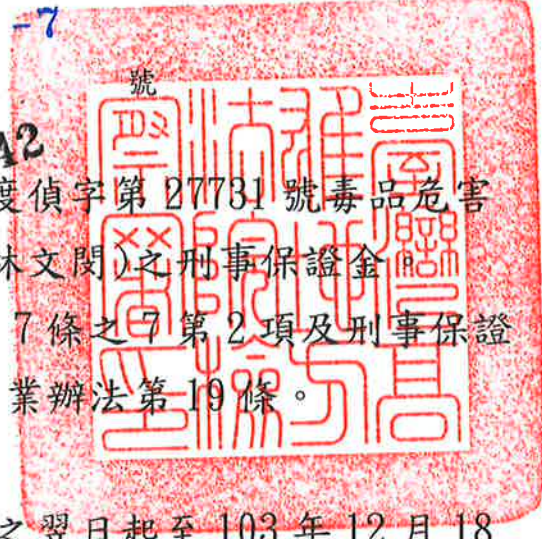 -7
號
42
度偵字第 27731 號毒品危害
林文閔)之刑事保證金。
7條之7第2項及刑事保證
業辦法第19條。
之翌日起至103年12月18
臺灣高
雄地方
法院檢
察署印